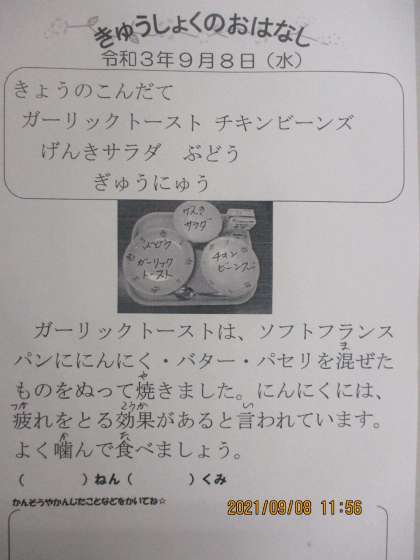 きゅうしょくのおはなし
令和3年9月8日（水）
きょうのこんだて
ガーリックトースト チキンビーンズ
げんきサラダ ぶどう
ぎゅうにゅう
げんき
サラダ
ぶどう
ガーリック
トースト
チキン
ビーンズ
ガーリックトーストは、ソフトフランス
パンににんにく・バター・パセリを混ぜた
ものをぬって焼きました。にんにくには、
疲れをとる効果があると言われています。
よく噛んで食べましょう。
（　　）ねん（　　）くみ
2021/09/08 11:56
かんそうやかんしたことなどをかいてね☆